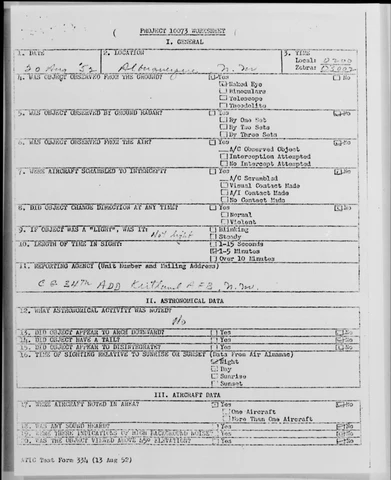 ( PROJECT 10073 WORKSHEET )
I. GENERAL
1. DATE 2. LOCATION 3. TIME
20 Aug '52 Albuquerque N. M. Local: 0200
Zebra:
4. WAS OBJECT OBSERVED FROM THE GROUND? Yes No
Naked Eye
Binoculars
Telescope
Theodolite
5. WAS OBJECT OBSERVED BY GROUND RADAR? Yes No
By One Set
By Two Sets
By Three Sets
6. WAS OBJECT OBSERVED FROM THE AIR? Yes No
A/C Observed Object
Interception Attempted
No Intercept Attempted
7. WERE AIRCRAFT SCRAMBLED TO INTERCEPT? Yes No
A/C Scrambled
Visual Contact Made
A/I Contact Made
No Contact Made
8. DID OBJECT CHANGE DIRECTION AT ANY TIME? Yes No
Normal
Violent
9. IF OBJECT WAS A "LIGHT", WAS IT: Not light Blinking
Steady
10. LENGTH OF TIME IN SIGHT: 1-15 Seconds
1-5 Minutes
Over 10 Minutes
11. REPORTING AGENCY (Unit Number and Mailing Address)
CO 34th ADD Kirtland AFB, N.M.
II. ASTRONOMICAL DATA
12. WHAT ASTRONOMICAL ACTIVITY WAS NOTED?
No
13. DID OBJECT APPEAR TO ARCH DOWNWARD? Yes No
14. DID OBJECT HAVE A TAIL? Yes No
15. DID OBJECT APPEAR TO DISINTEGRATE? Yes No
16. TIME OF SIGHTING RELATIVE TO SUNRISE OR SUNSET (Data From Air Almanac)
Night
Day
Sunrise
Sunset
III. AIRCRAFT DATA
17. WERE AIRCRAFT NOTED IN AREA? Yes No
One Aircraft
More Than One Aircraft
18. WAS ANY SOUND HEARD? Yes No
19. WERE THERE INDICATIONS OF HIGH BACKGROUND NOISE? Yes No
20. WAS THE OBJECT VIEWED ABOVE 45° ELEVATION? Yes No
ATIC Test Form 334 (13 Aug 52)